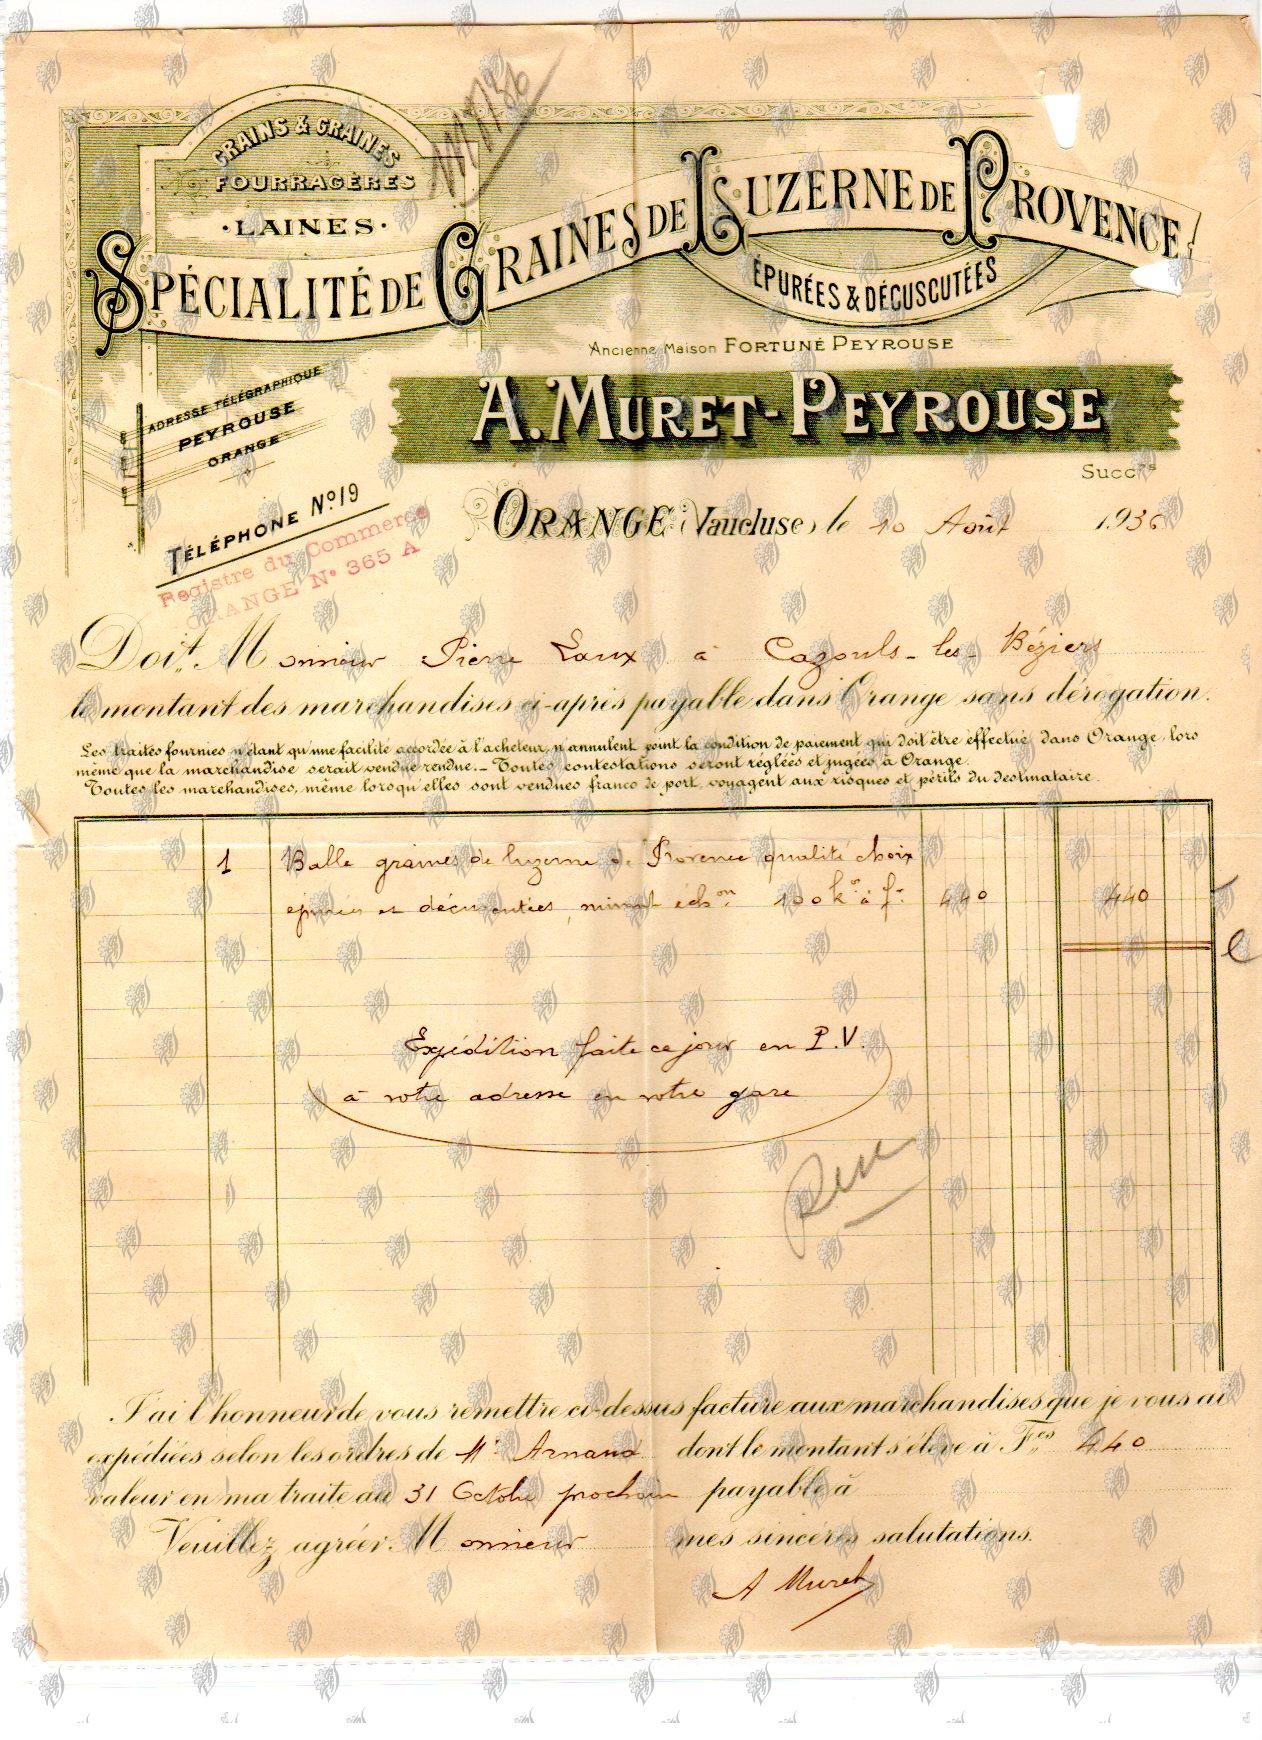 GRAINS & GRAINES
FOURRAGÈRES
·LAINES·
SPÉCIALITÉ DE GRAINES DE LUZERNE DE PROVENCE
ÉPURÉES & DÉCUSCUTÉES
Ancienne Maison FORTUNÉ PEYROUSE
A. MURET-PEYROUSE
Succrs
ADRESSE TÉLÉGRAPHIQUE
PEYROUSE
ORANGE
TÉLÉPHONE No 19
Registre du Commerce
ORANGE No 365 A
ORANGE (Vaucluse), le 10 Août 1936
Doit Monsieur Pierre Laux à Cazouls-les-Béziers
le montant des marchandises ci-après payable dans Orange sans dérogation.
Les traites fournies n'étant qu'une facilité accordée à l'acheteur, n'annulent point la condition de paiement qui doit être effectué dans Orange, lors
même que la marchandise serait vendue rendue. _ Toutes contestations seront réglées et jugées à Orange.
Toutes les marchandises, même lorsqu'elles sont vendues franco de port, voyagent aux risques et périls du destinataire.
1 Balle graines de luzerne de Provence qualité choix
épurées et décuscutées, suivant échon. 100 kos à f. 440 440
Expédition faite ce jour en P.V.
à votre adresse en votre gare
J'ai l'honneur de vous remettre ci-dessus facture aux marchandises que je vous ai
expédiées selon les ordres de Mr Arnaud dont le montant s'élève à Fcs 440
valeur en ma traite au 31 Octobre prochain payable à
Veuillez agréer Monsieur mes sincères salutations.
A Muret